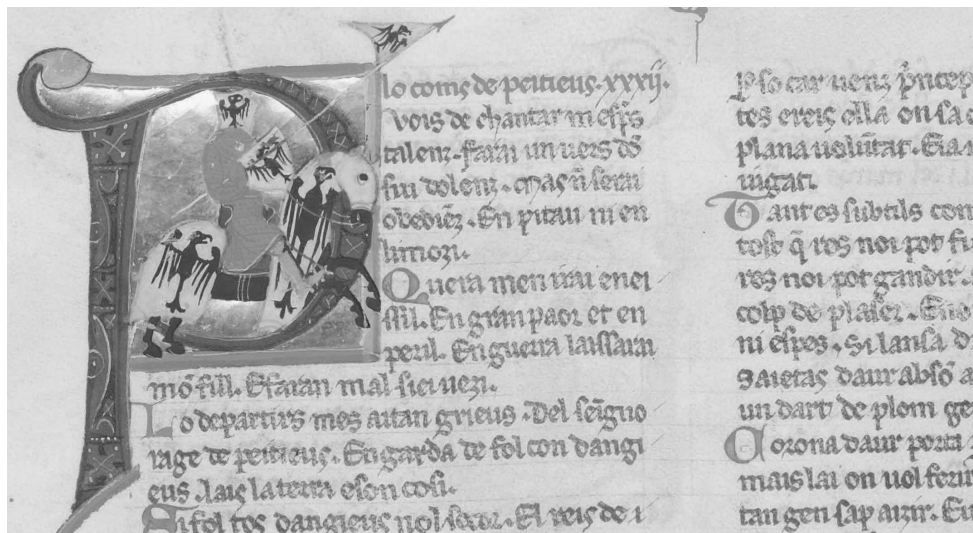 lo coms de peitieus. xxxij.
vois de chantar mespͥs
talenz. farai un uers dō
sui dolenz. Mas ñ serai
obediēz. En pitau ni en
limozi.
Quera men irai enei
ssil. En gran paor et en
peril. En guerra laissarai
mō fill. E faran mal siei uezi.
Lo departirs mes aitan grieus. Del seigno
rage de peitieus. En garda de folcon dangi
eus. lais la terra e son cosi.
Si folcos dangieus nol socor. El reis de i
P so car uenz p̃ncep
tes e reis
plana uolūtat. E ia
iugat.
Tant es subtils com
tost q̃ res noi pot
res noi pot gandir.
colp de plazer. E no
ni espes. Si lansa d
saietas daur ab
un dart de plom ge
Corona daur porta
mais lai on uol ferir
tan gen sap aizir. En